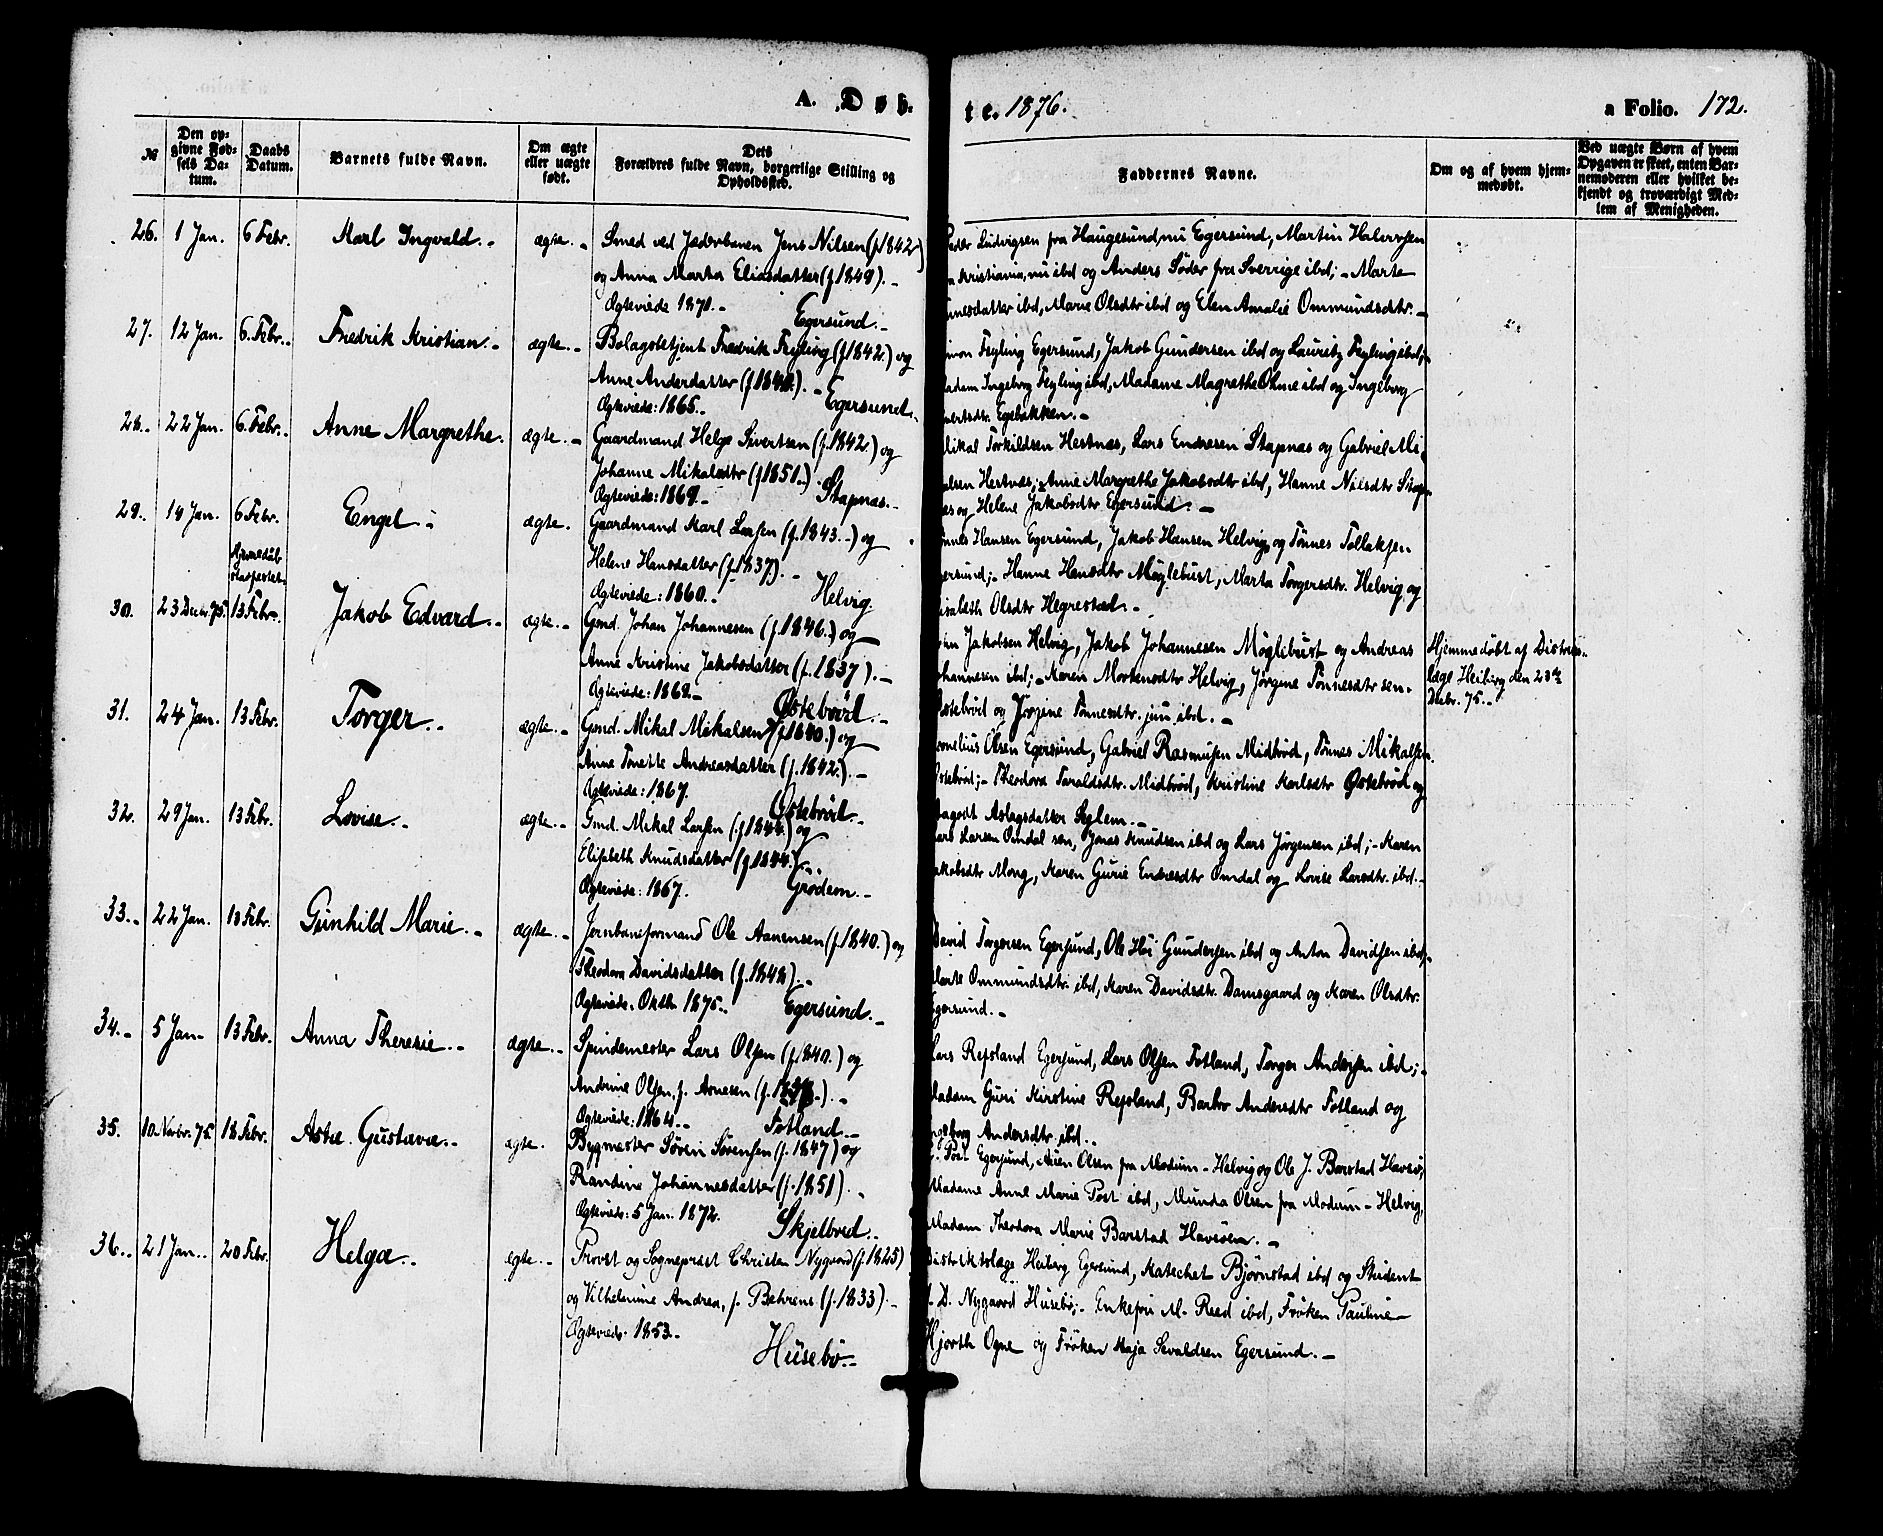 A. Døb-
te. 1876.
a Folio. 172.
№
Den op-
givne Fød-
sels Da-
tum.
Daabs
Datum.
Barnets fulde Navn.
Om ægte
eller uægte
født.
Dets
Forældres fulde Navn, borgerlige Stilling og
Opholdssted.
Faddernes Navne.
Om og af hvem hjem-
medøbt.
Ved uægte Børn af hvem
Opgaven er skeet, enten Bar-
nemoderen eller hvilket be-
kjendt og troværdigt Med-
lem af Menigheden.
26. 1 Jan. 6 Febr. Karl Ingvald. ægte. Smed ved Jæderbanen Jens Nilsen (f 1842)
og Anna Marta Eliasdatter (f 1849).
Ægteviede 1871. Egersund.
Ludvigsen fra Haugesund, nu Egersund, Martin Halvorsen
Kristiania, nu ibd og Anders Söder fra Sverige ibd; Marte
ibd, Marie Olsdtr ibd og Elen Amalie Ommundsdtr.
27. 12 Jan. 6. Febr. Fredrik Kristian. ægte. Bolagsbetjent Fredrik Feyling (f 1842.) og
Anne Anderdatter (f.1840.).
Ægteviede: 1865. Egersund.
Feyling Egersund, Jakob Gundersen ibd og Lauritz Feyling ibd;
Ingeborg Feyling ibd, Madame Magrethe Ohme ibd og Ingeborg
Egebakken.
28. 22 Jan. 6. Febr. Anne Margrethe. ægte. Gaardmand Helge Sivertsen (f.1842) og
Johanne Mikalsdtr (f 1851.)
Ægteviede: 1869. Stapnas.
Torkildsen Hestnes, Lars Endresen Stapnas og Gabriel Mi-
Hestnes; Anne Margrethe Jakobsdtr ibd, Hanne Nilsdtr Stap-
og Helene Jakobsdtr Egersund.
29. 14 Jan. 6 Febr. Engel ægte. Gaardmand Karl Larsen (f.1843.) og
Helene Hansdatter (f.1837).
Ægteviede: 1860. Helvig.
Hansen Egersund, Jakob Hansen Helvig og Tönnes Tollaksen
Hanne Hansdtr Møglebust, Marta Torgersdtr. Helvig og
Olsdtr Hegrestad.
30. 23 Decbr. 75. 13 Febr. Jakob Edvard. ægte. Gmd. Johan Johannesen (f.1846.) og
Anne Kristine Jakobsdatter (f.1837).
Ægteviede: 1862. Østebröd.
Jakobsen Helvig, Jakob Johannesen Møglebust og Andreas
ibd; Karen Mortensdtr Helvig, Jörgine Tönnesdtr sen.
og Jörgine Tönnesdtr. jun ibd.
Hjemmedöbt af Distrikts-
læge Heiberg den 23de
Decbr. 75.
31. 24 Jan. 13 Febr. Torger. ægte. Gmd. Mikal Mikalsen (f 1840.) og
Anne Tonette Andreasdatter (f.1842.).
Ægteviede: 1867. Østebröd.
Olsen Egersund, Gabriel Rasmusen Midbröd, Tönnes Mikalsen
Theodora Taraldsdtr. Midbröd, Kristine Karlsdtr Østebröd og
Aslagsdatter
32. 29 Jan. 13 Febr. Lovise. ægte. Gmd. Mikal Larsen (f 1844.) og
Elisebeth Knudsdatter (f 1844).
Ægteviede: 1867. Grödem.
Lars Larsen Omdal sen, Jonas Knudsen ibd og Lars Jörgensen ibd; Karen
Jakobsdtr Mong, Karen Gurie Endresdtr Omdal og Lovise Larsdtr. ibd.
33. 22 Jan. 13 Febr. Gunhild Marie. ægte. Jernbaneformand Ole Aanensen (f.1840.) og
Theodora Davidsdatter (f.1848).
Ægteviede. Oktb. 1875. Egersund.
David Torgersen Egersund, Ole Gundersen ibd og Anton Davidsen ibd,
Ommundsdtr. ibd, Karen Davidsdtr. Damsgaard og Karen Olsdtr.
Egersund.
34. 5 Jan. 13 Febr. Anna Theresie. ægte. Spindemester Lars Olsen (f 1840.) og
Andrine Olsen, f. Arnesen
Ægteviede: 1864. Fotland.
Lars Repsland Egersund, Lars Olsen Fotland, Torger Andersen ibd;
Madam Guri Kirstine Repsland, Barbro Andersdtr Fotland og
Andersdtr ibd.
35. 10. Novbr. 75 18 Febr. Asta Gustava. ægte. Bygmester Sören Sörensen (f. 1847) og
Randine Johannesdatter (f. 1851).
Ægteviede: 5 Jan. 1872. Skjelbred.
Post Egersund, Olsen fra Modum - Helvig og Ole J. Barstad Havsö,
Madame Anne Marie Post ibd, Munda Olsen fra Modum - Helvig,
Madam Theodora Marie Barstad Havsöen.
36. 21 Jan. 20 Febr. Helga. ægte. Provst og Sogneprest Christen Nygaard (f.1825)
og Vilhelmine Andrea, f. Behrens (f. 1833).
Ægteviede. 1853. Husebö.
Distriktslæge Heiberg Egersund, Katechet Björnstad ibd og Student
D. Nygaard Husebö; Enkefru M. Reed ibd, Fröken Pauline
Hjorth Ogne og Fröken Maja Sevaldsen Egersund.